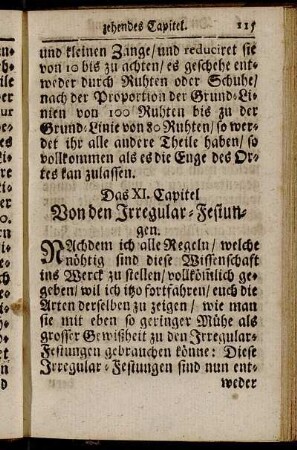 zehendes Capitel. 115
und kleinen Zange/ und reduciret sie
von 10 bis zu achten/ es geschehe ent-
weder durch Ruhten oder Schuhe/
nach der Proportion der Grund-Li-
nien von 100 Ruhten bis zu der
Grund-Linie von 80 Ruhten/ so wer-
det ihr alle andere Theile haben/ so
vollkommen als es die Enge des Or-
tes kan zulassen.
Das XI. Capitel
Von den Irregular-Festun-
gen.
NAchdem ich alle Regeln/ welche
nöhtig sind diese Wissenschaft
ins Werck zu stellen/ vollköm̃lich ge-
geben/ wil ich itzo fortfahren/ euch die
Arten derselben zu zeigen/ wie man
sie mit eben so geringer Mühe als
grosser Gewißheit zu den Irregular-
Festungen gebrauchen könne: Diese
Irregular-Festungen sind nun ent-
weder